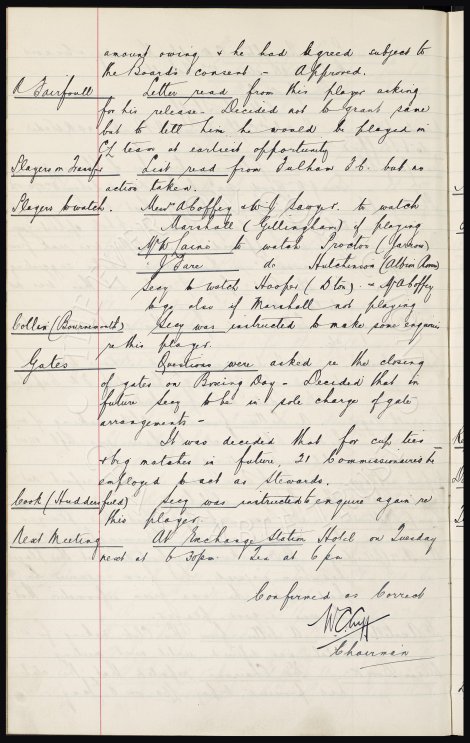 amount owing & he had agreed subject to
the Board's consent - Approved.
Fairfoull Letter read from this player asking
for his release - Decided not to grant same
but to tell him he would be played in
CL team at earliest opportunity
Players on Transfer List read from Fulham F.C. but no
action taken.
Players to watch. Messrs A Coffey & W J Sawyer to watch
Marshall (Gillingham) if playing
Mr to watch Procter (Jarrow)
J Fare do Hutchinson (Albion Rovers)
Secy to watch Hooper (Dton) - & Mr A Coffey
to go also if Marshall not playing
(Bournemouth) Secy was instructed to make some enquiries
re this player.
Gates Questions were asked re the closing
of gates on Boxing Day - Decided that in
future Secy to be in sole charge of gate
arrangements -
It was decided that for cup ties
& big matches in future, 21 Commissionaires be
employed to act as Stewards.
Cook (Huddersfield) Secy was instructed to enquire again re
this player.
Next Meeting At Exchange Station Hotel on Tuesday
next at 6 30pm Tea at 6 pm
Confirmed as Correct
W.C. Cuff
Chairman